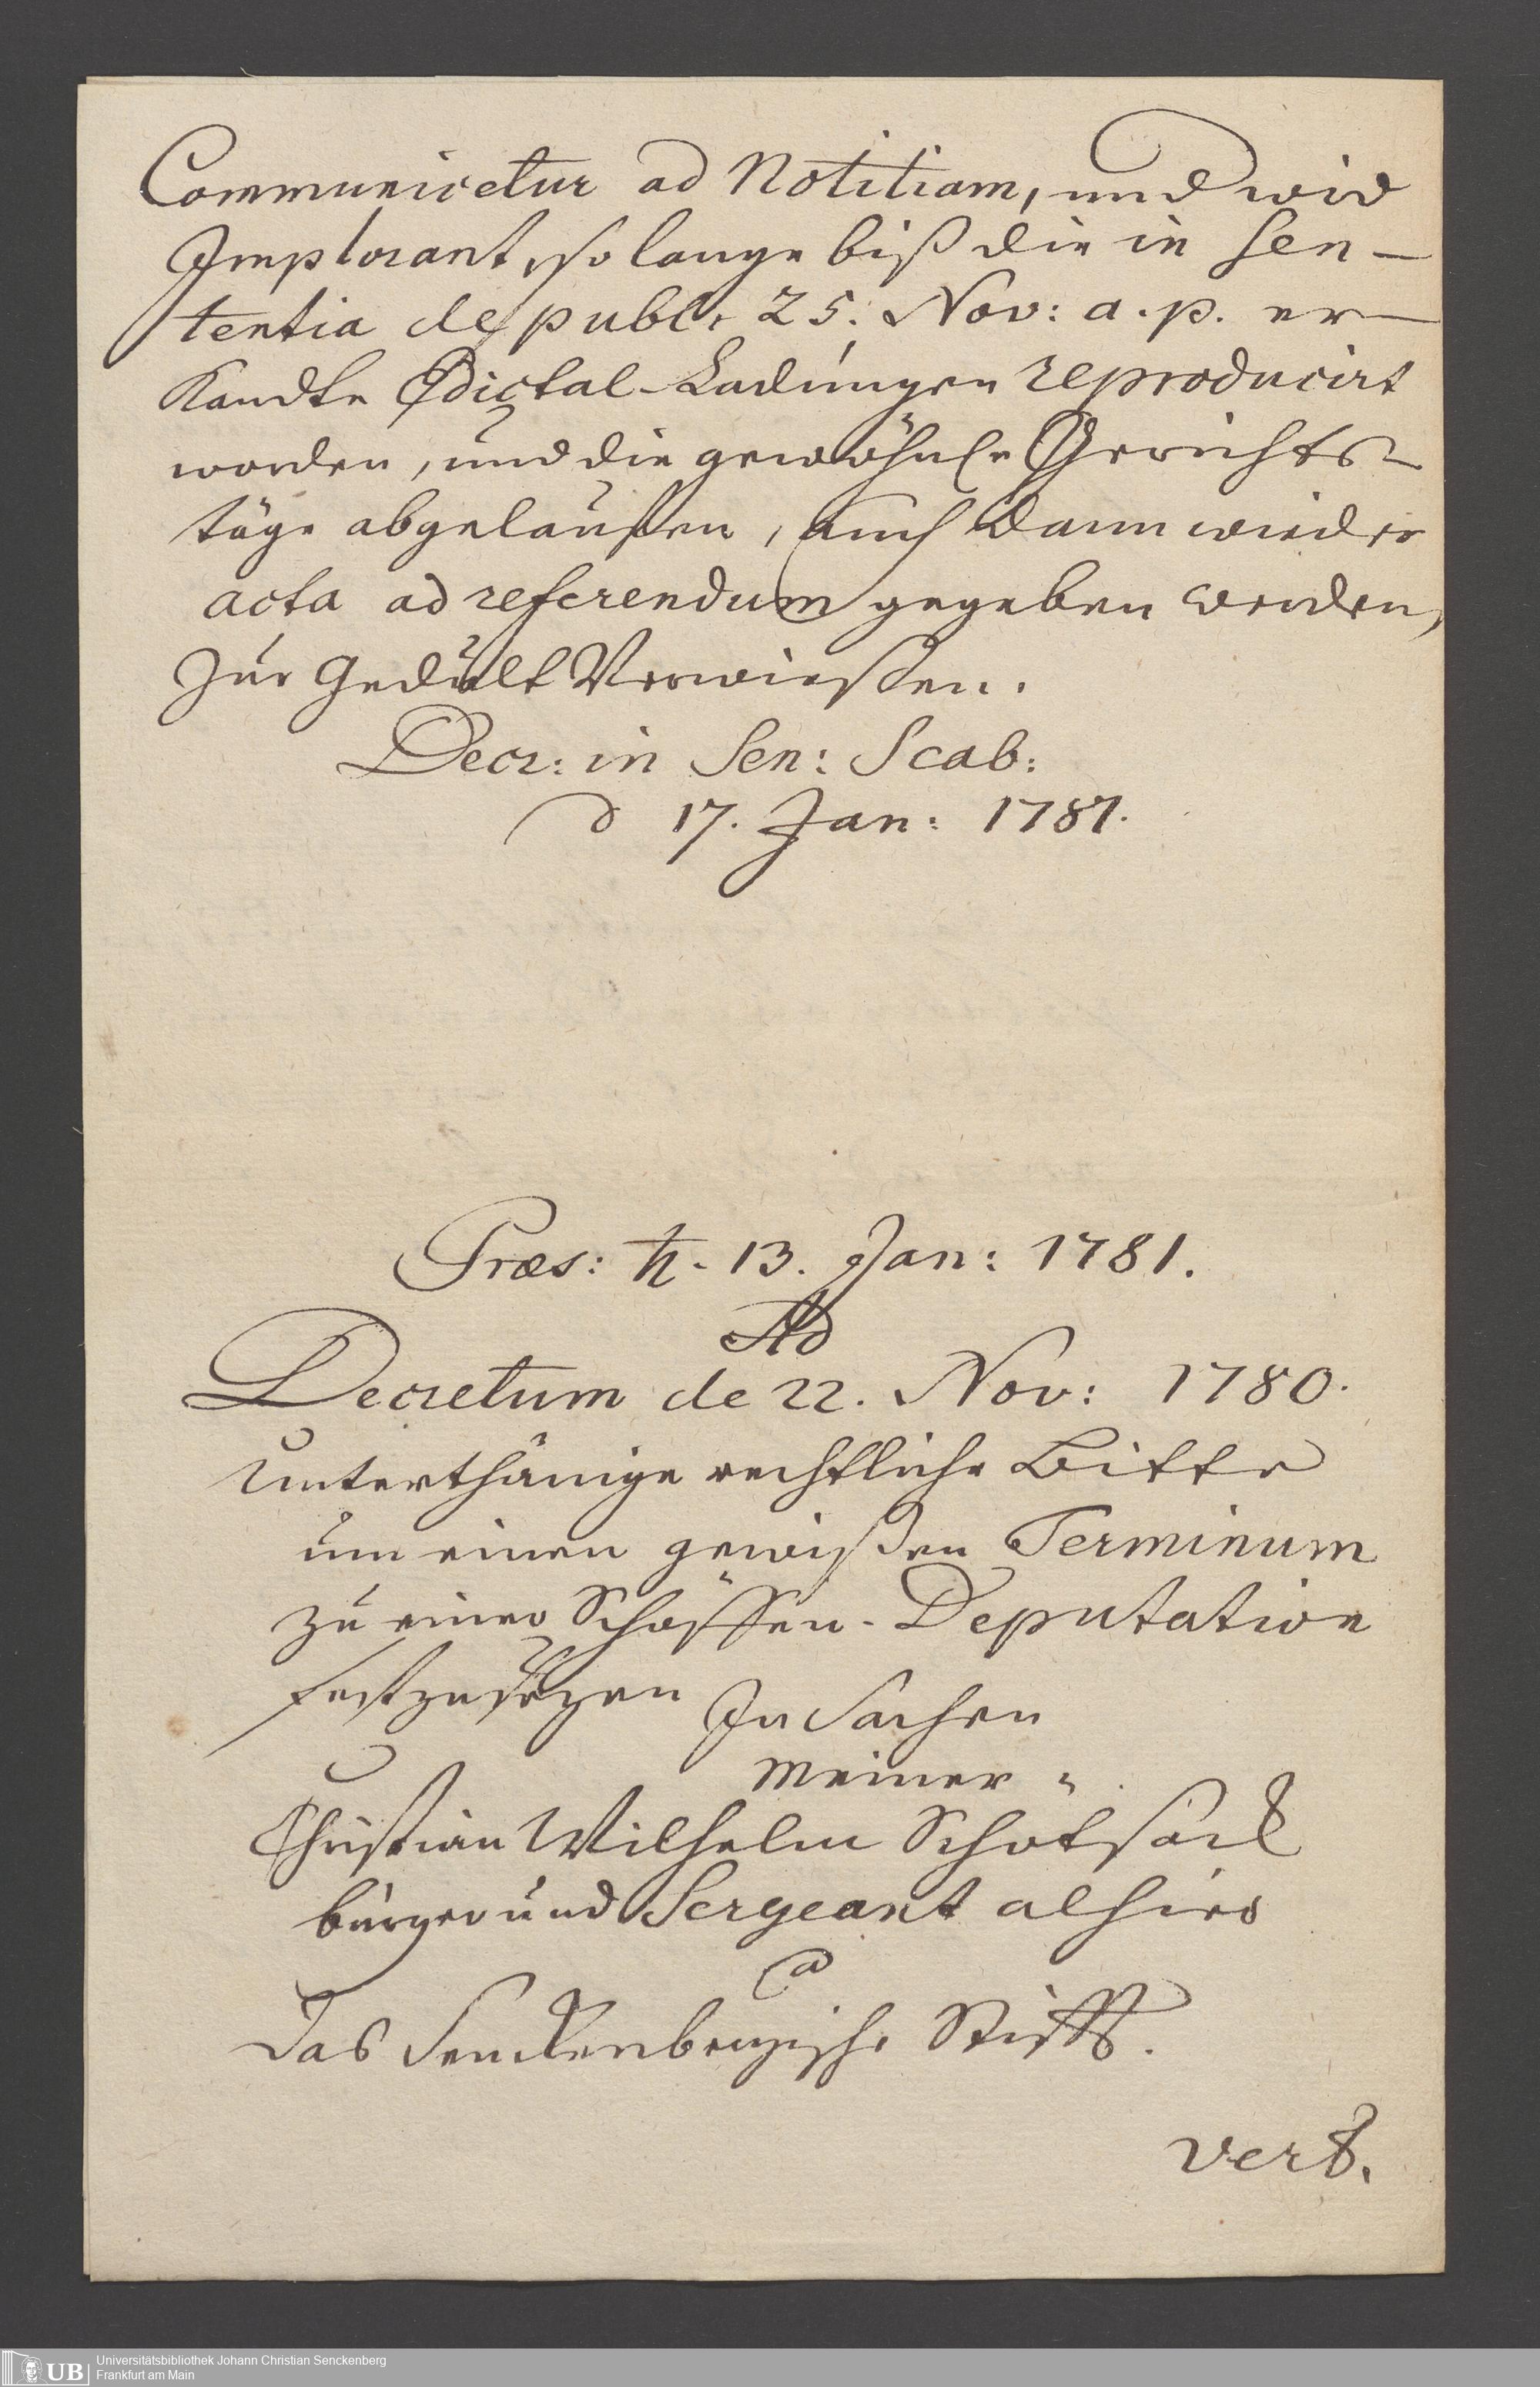 Communicetur ad Notitiam, und wird
Implorant, so lange biß die in Sen-
tentia de publ. 25. Nov: a. p. er-
kandte Edictal-Ladungen reproducirt
worden, und die gewöhnle Gerichts-
täge abgelauffen, auch dann wieder
acta ad referendum gegeben werden,
zur Gedult Verwiesen.
Decr: in Sen: Scab:
d 17. Jan: 1781.
Præs: ♄. 13. Jan: 1781.
Ad
Decretum de 22. Nov: 1780.
Unterthänige rechtliche Bitte
um einen gewißen Terminum
zu einer Schöffen-Deputation
festzusetzen
In Sachen
Meiner
Christian Wilhelm Schötsack
bürger und Sergeant alhier
Ca
das Senckenbergische Stifft.
vert.
UB
Universitätsbibliothek Johann Christian Senckenberg
Frankfurt am Main